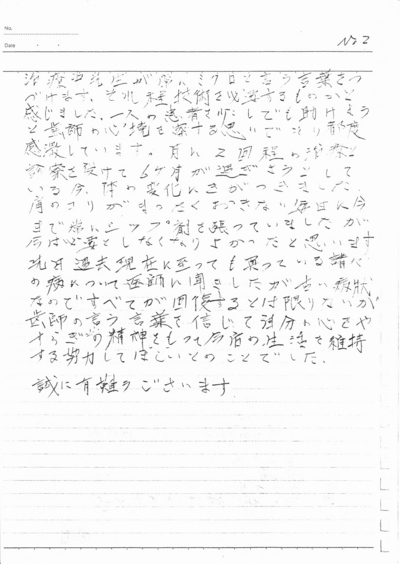 No.
Date ・ ・
No 2
治療法 が常に 日と言う言葉をつ
づけます。それ程技術を必要するものかと
感じました。一人の患者を少しでも助けよう
と医師の心境を察する思いでその都度
感激しています。月に2回程の治療と
診察を受けて6ヶ月が過ぎようとして
いる今、体の変化にきがつきました。
肩のこりがまったくおきない毎日に今
まで常にシップ剤を張っていましたが
今は必要としなくなりよかったと思います
又 過去現在に至っても患っている諸々
の病について医師に聞きましたが古い病状
なのですべてが回復するとは限りないが
医師の言う言葉を信じて自分の心をや
すらぎの精神をもって今后の生活を維持
する努力してほしいとのことでした。
誠に有難うございます